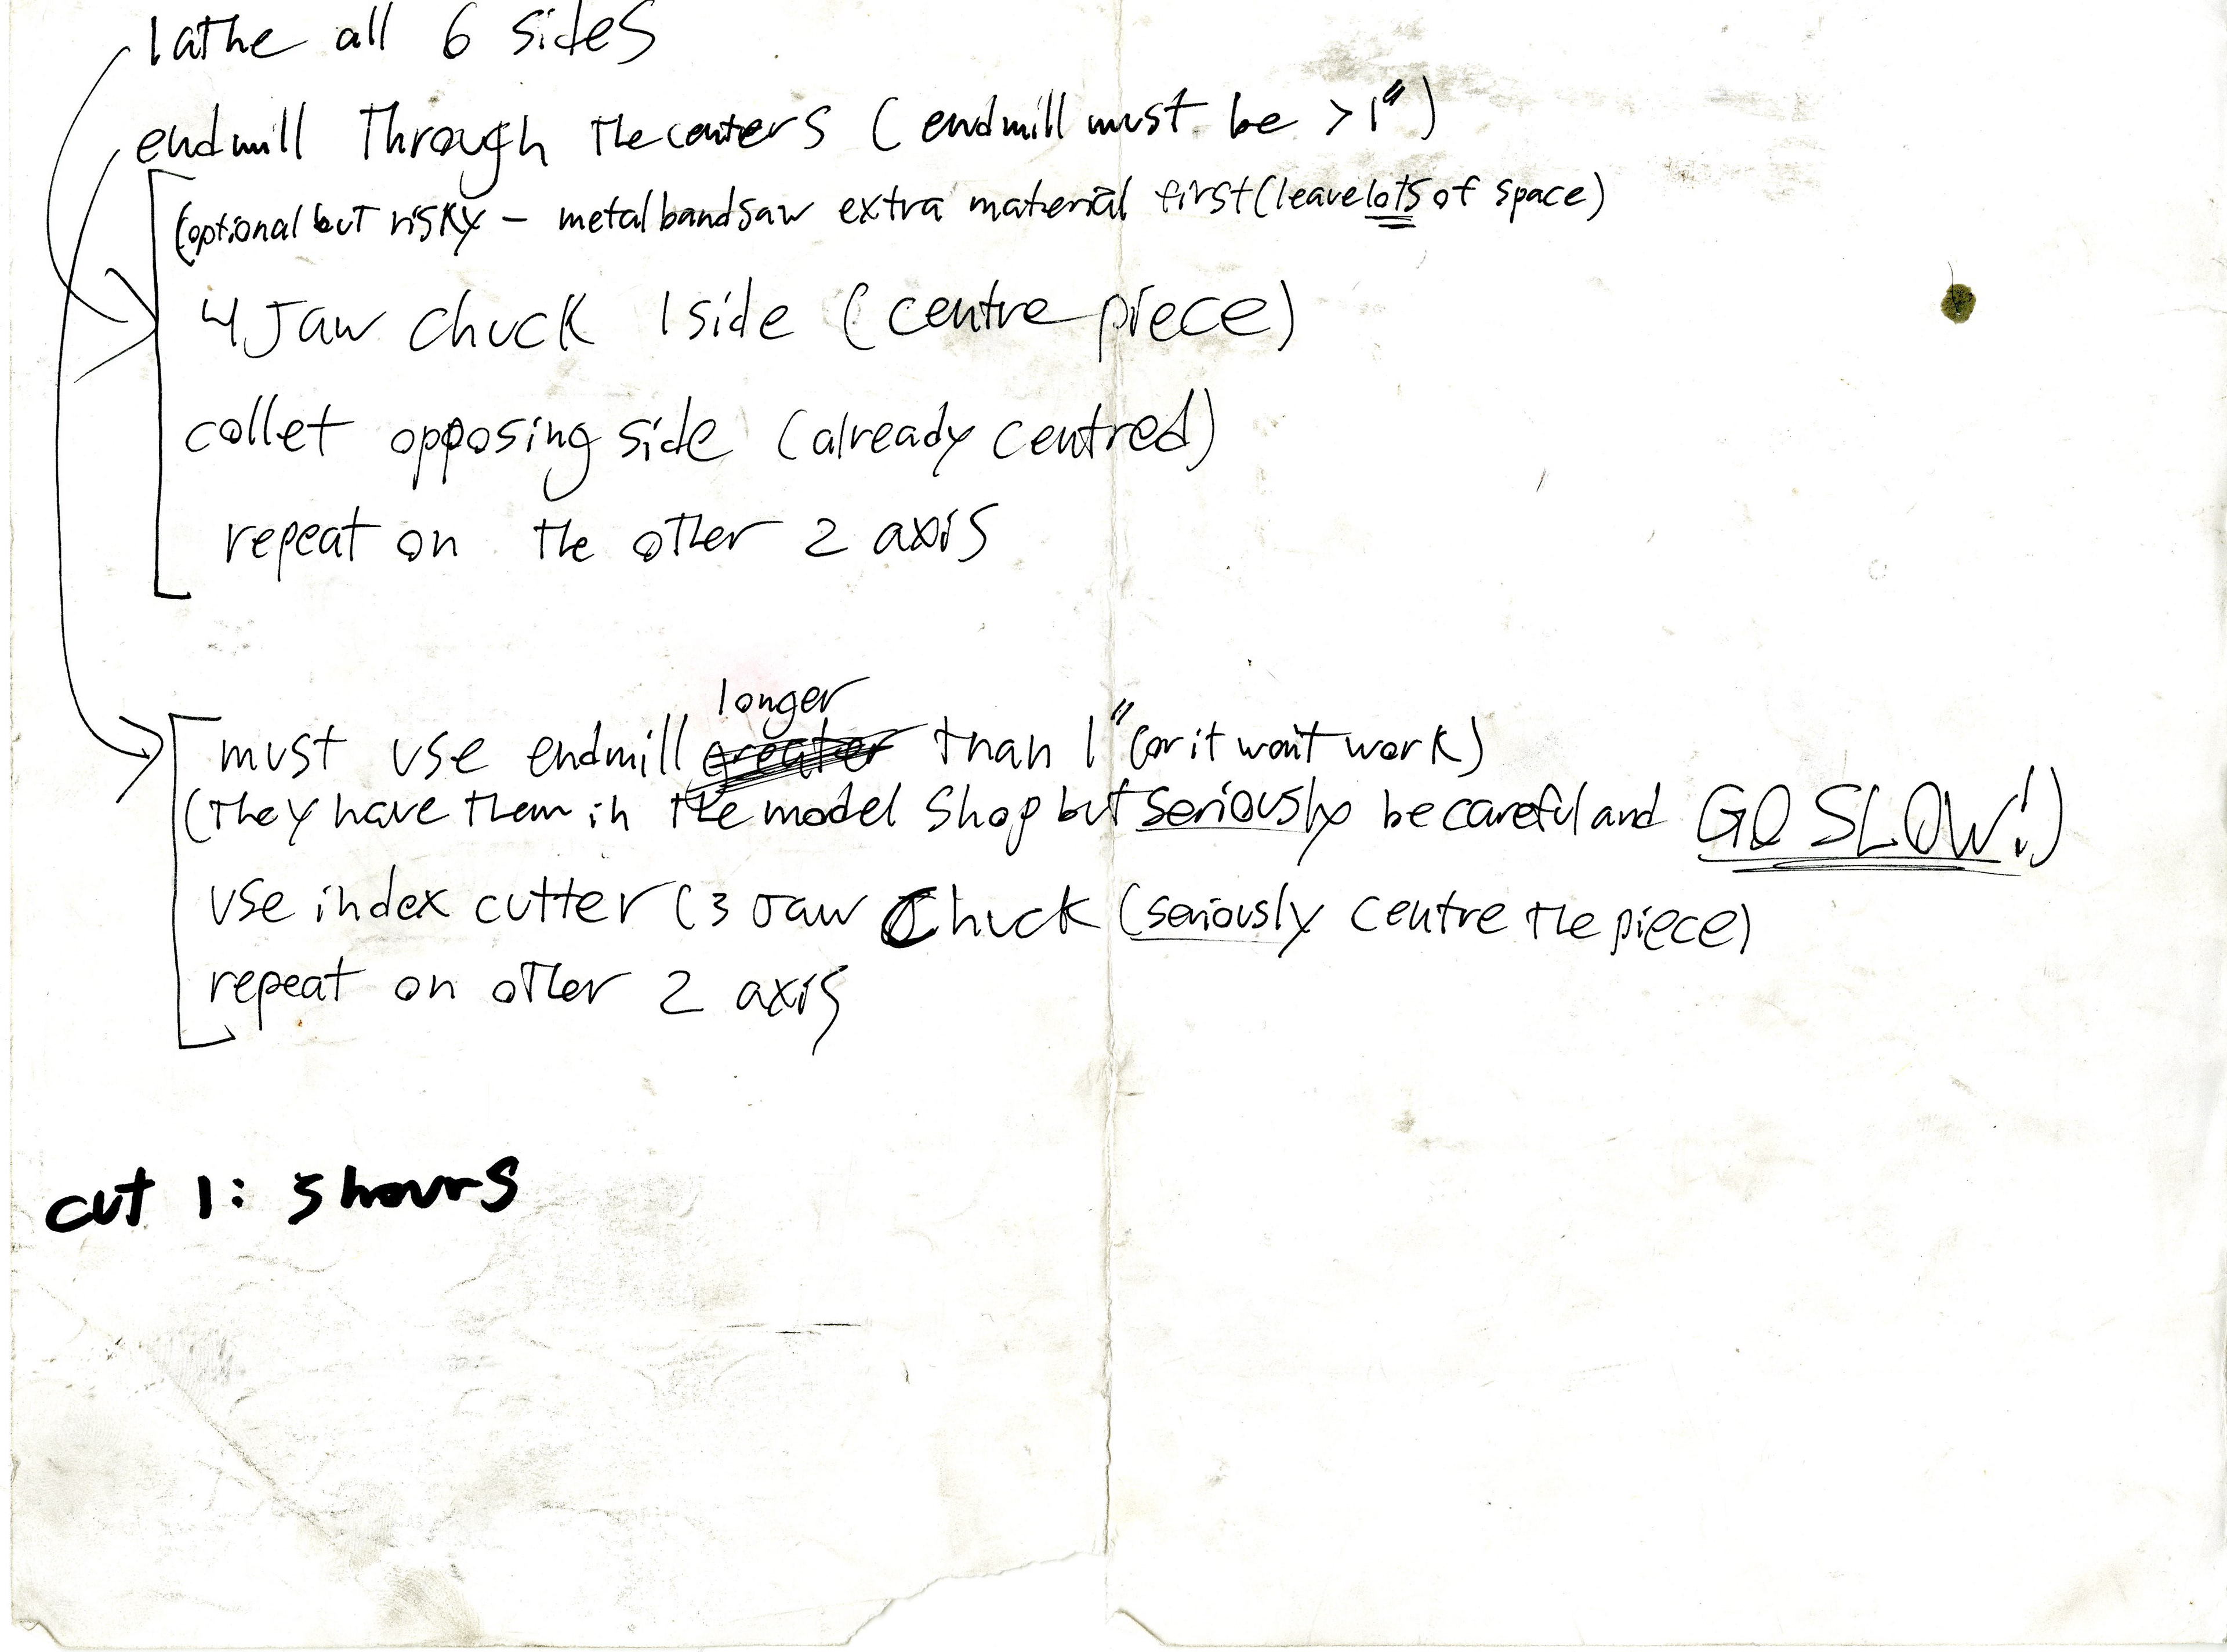 lathe all 6 sides
endmill through the centers (endmill must be >1")
(optional but risky – metal bandsaw extra material first (leave lots of space)
4 Jaw chuck 1 side (centre piece)
collet opposing side (already centred)
repeat on the other 2 axis
longer
must use endmill greater than 1" (or it wont work)
(they have them in the model shop but seriously be careful and GO SLOW!)
use index cutter (3 Jaw Chuck (seriously centre the piece)
repeat on other 2 axis
cut 1: 5 hours